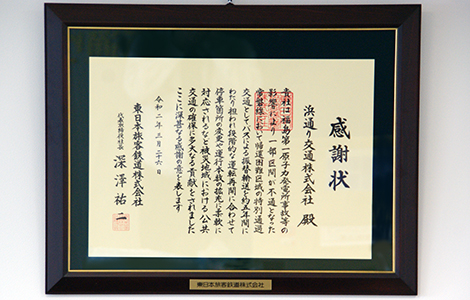 感謝状
浜通り交通株式会社 殿
貴社は福島第一原子力発電所事故等の
影響により一部区間が不通となった
常磐線において帰還困難区域の特別通過
交通としてバスによる振替輸送を約五年間に
わたり担われ段階的な運転再開に合わせて
停車箇所の変更や運行本数の拡充に柔軟に
対応されるなど被災地域における公共
交通の確保に多大なる貢献をされました
ここに深甚なる感謝の意を表します
令和二年三月二十六日
東日本旅客鉄道株式会社
代表取締役社長 深澤祐二
東日本旅客鉄道株式会社